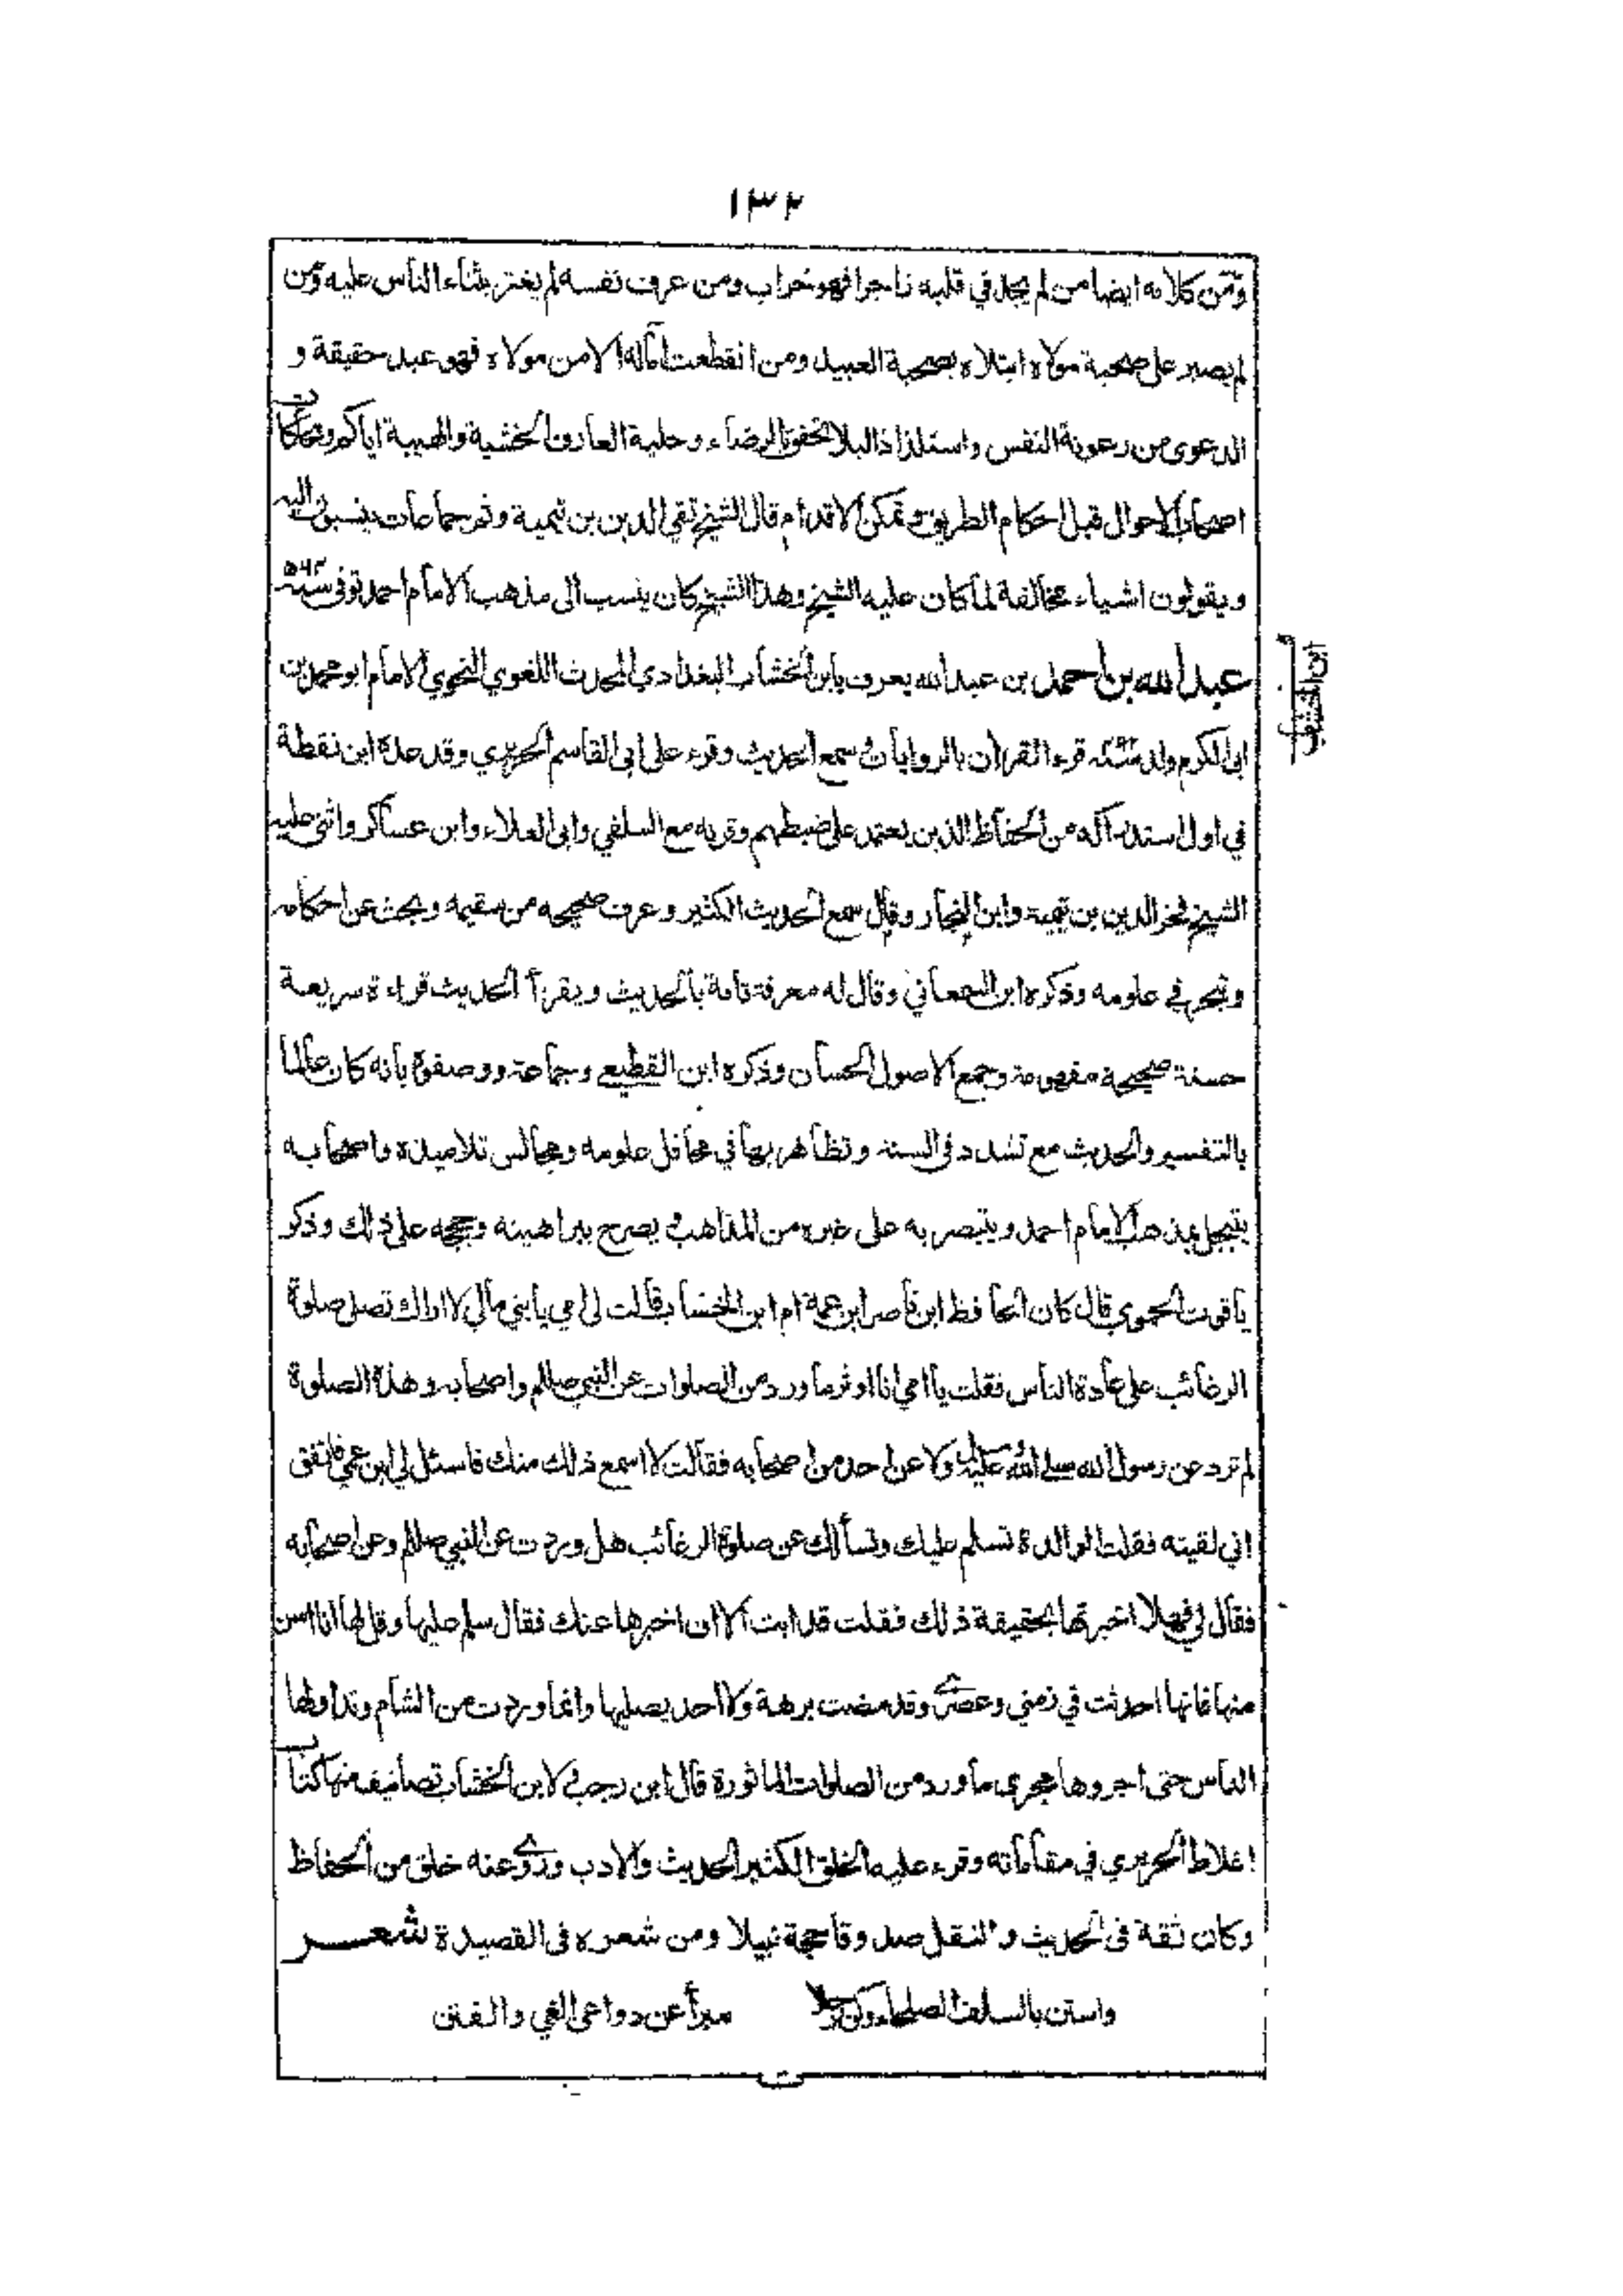 ١٣٢
ومن كلامه ايضا من لم يجد في قلبه زاجرا فهو خراب ومن عرف نفسه لم يغتر بثناء الناس عليه ومن
لم يصبر على صحبة مولاه ابتلاه بصحبة العبيد ومن انقطعت آماله الا من مولاه فهو عبد حقيقة و
الدعوى من رعونة النفس واستلذاذ البلاء تحقق بالرضاء وحلية العارف الخشية والهيبة اياكم ومحاكات
اصحاب الاحوال قبل احكام الطريق وتمكن الاقدام قال الشيخ تقي الدين بن تيمية وثم جماعات ينسبون اليه
ويقولون اشياء مخالفة لما كان عليه الشيخ وهذا الشيخ كان ينسب الى مذهب الامام احمد توفى سنه
عبد الله بن احمد بن عبد الله يعرف بابن الخشاب البغدادي المحدث اللغوي النحوي الامام ابو محمد بن
ابى الكرم ولد قرء القران بالروايات سمع الحديث وقرء على ابى القاسم الحريري وقد عده ابن نقطة
في اول استدراكه من الحفاظ الذين يعتمد على ضبطهم وقرنه مع السلفي وابى العلاء وابن عساكر واثنى عليه
الشيخ فخر الدين بن تيمية وابن النجار وقال سمع الحديث الكثير وعرف صحيحه من سقيمه وبحث عن احكامه
وتبحر في علومه وذكره ابن السمعاني وقال له معرفة تامة بالحديث ويقرأ الحديث قراءة سريعة
حسنة صحيحة مفهومة وجمع الاصول الحسان وذكره ابن القطيعي وجماعة ووصفوه بانه كان عالما
بالتفسير والحديث مع تشدد فى السنة وتظاهر بها في محافل علومه ومجالس تلاميذه واصحابه
يتبجل بمذهب الامام احمد وينتصر به على غيره من المذاهب يصرح ببراهينه وحججه على ذلك وذكر
ياقوت الحموي قال كان الحافظ ابن ناصر ابن عمة ام ابن الخشاب قالت لى امي يا بني مالي لا اراك تصلى صلوة
الرغائب على عادة الناس فقلت يا امي انا اوثر ما ورد من الصلوات عن النبي صللم واصحابه وهذه الصلوة
لم ترد عن رسول الله صلى الله عليه ولا عن احد من اصحابه فقالت لا اسمع ذلك منك فاسئل لي ابن عمي فاتفق
اني لقيته فقلت له الوالدة تسلم عليك وتسألك عن صلوة الرغائب هل وردت عن النبي صللم وعن اصحابه
فقال لي فهلا اخبرتها بحقيقة ذلك فقلت قد ابت الا ان اخبرها عنك فقال سلم عليها وقل لها انا اسن
منها فانها احدثت في زمني وعصري وقد مضت برهة ولا احد يصليها وانما وردت من الشام وتداولها
الناس حتى اجروها مجرى ما ورد من الصلوات الماثورة قال ابن رجب لابن الخشاب تصانيف منها كتاب
اغلاط الحريري في مقاماته وقرء عليه الخلق الكثير الحديث والادب وروى عنه خلق من الحفاظ
وكان ثقة فى الحديث والنقل صدوقا حجة نبيلا ومن شعره فى القصيدة شعر
واستن بالسلف الصلحاء وكن رجلا مبرأ عن دواعى الغي والفتن